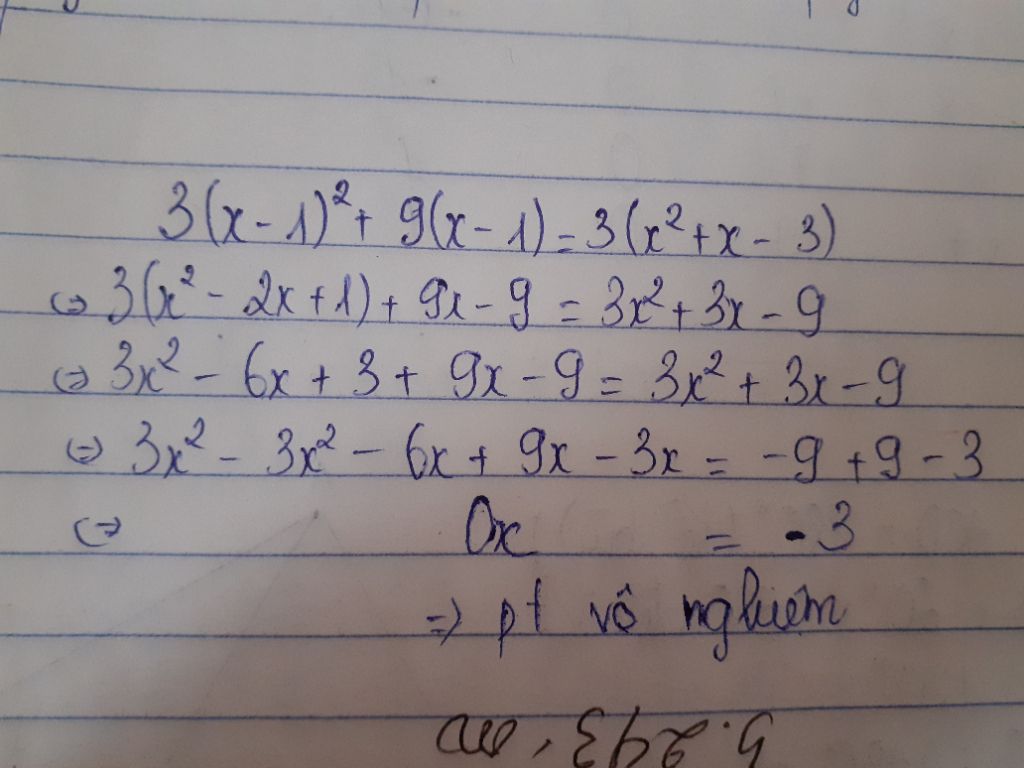 3(x-1)² + 9(x-1) = 3(x²+x-3)
⇔ 3(x² - 2x + 1) + 9x - 9 = 3x² + 3x - 9
⇔ 3x² - 6x + 3 + 9x - 9 = 3x² + 3x - 9
⇔ 3x² - 3x² - 6x + 9x - 3x = -9 + 9 - 3
⇔ 0x = -3
⇒ pt vô nghiệm